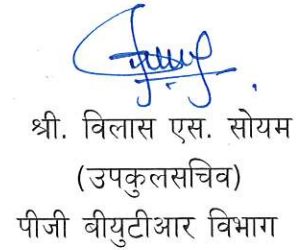 श्री. विलास एस. सोयम
(उपकुलसचिव)
पीजी बीयुटीआर विभाग